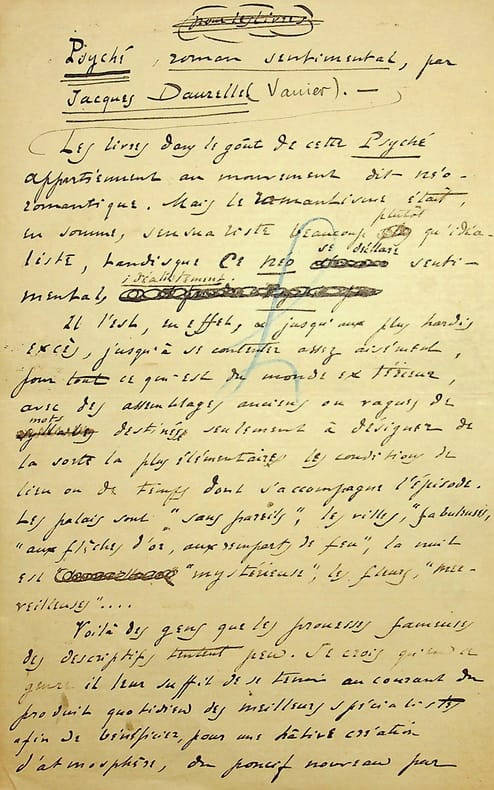 (pour les livres)
Psyché, roman sentimental, par
Jacques Daurelle (Vanier). —
Les livres dans le goût de cette Psyché
appartiennent au mouvement dit néo-
romantique. Mais le romantisme était,
en somme, sensualiste beaucoup plutôt qu'idéa-
liste, tandis que ce néo se déclare senti-
mental, idéalistement.
Il l'est, en effet, jusqu'aux plus hardis
excès, jusqu'à se contenter assez aisément,
pour tout ce qui est du monde extérieur,
avec des assemblages anciens ou vagues de
mots destinés seulement à désigner de
la sorte la plus élémentaires les conditions de
lieu ou de temps dont s'accompagne l'épisode.
Les palais sont "sans pareils", les villes, "fabuleuses,
"aux flèches d'or, aux remparts de feu", la nuit
est "mystérieuse", les fleurs, "mer-
veilleuses"....
Voilà des gens que les prouesses fameuses
des descriptifs tentent peu. Je crois qu'en ce
genre il leur suffit de se tenir au courant du
produit quotidien des meilleurs spécialistes
afin de bénéficier, pour une hâtive création
d'atmosphère, du poncif nouveau par